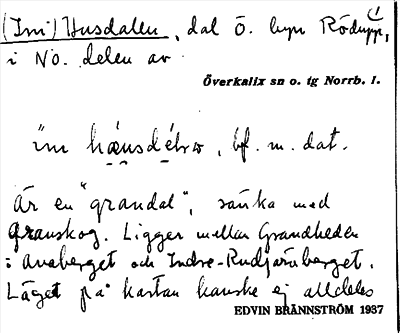 (Imi) Husdalen, dal ö. byn Rödupp, 1)
i NÖ. delen av
Överkalix sn o. tg Norrb. l.
bf. m. dat.
Är en "grandal", sänka med
granskog. Ligger mellan Grandheden
i Avaberget och Indre-Rudjärvberget.
Läget på kartan kanske ej alldeles
EDVIN BRÄNNSTRÖM 1937